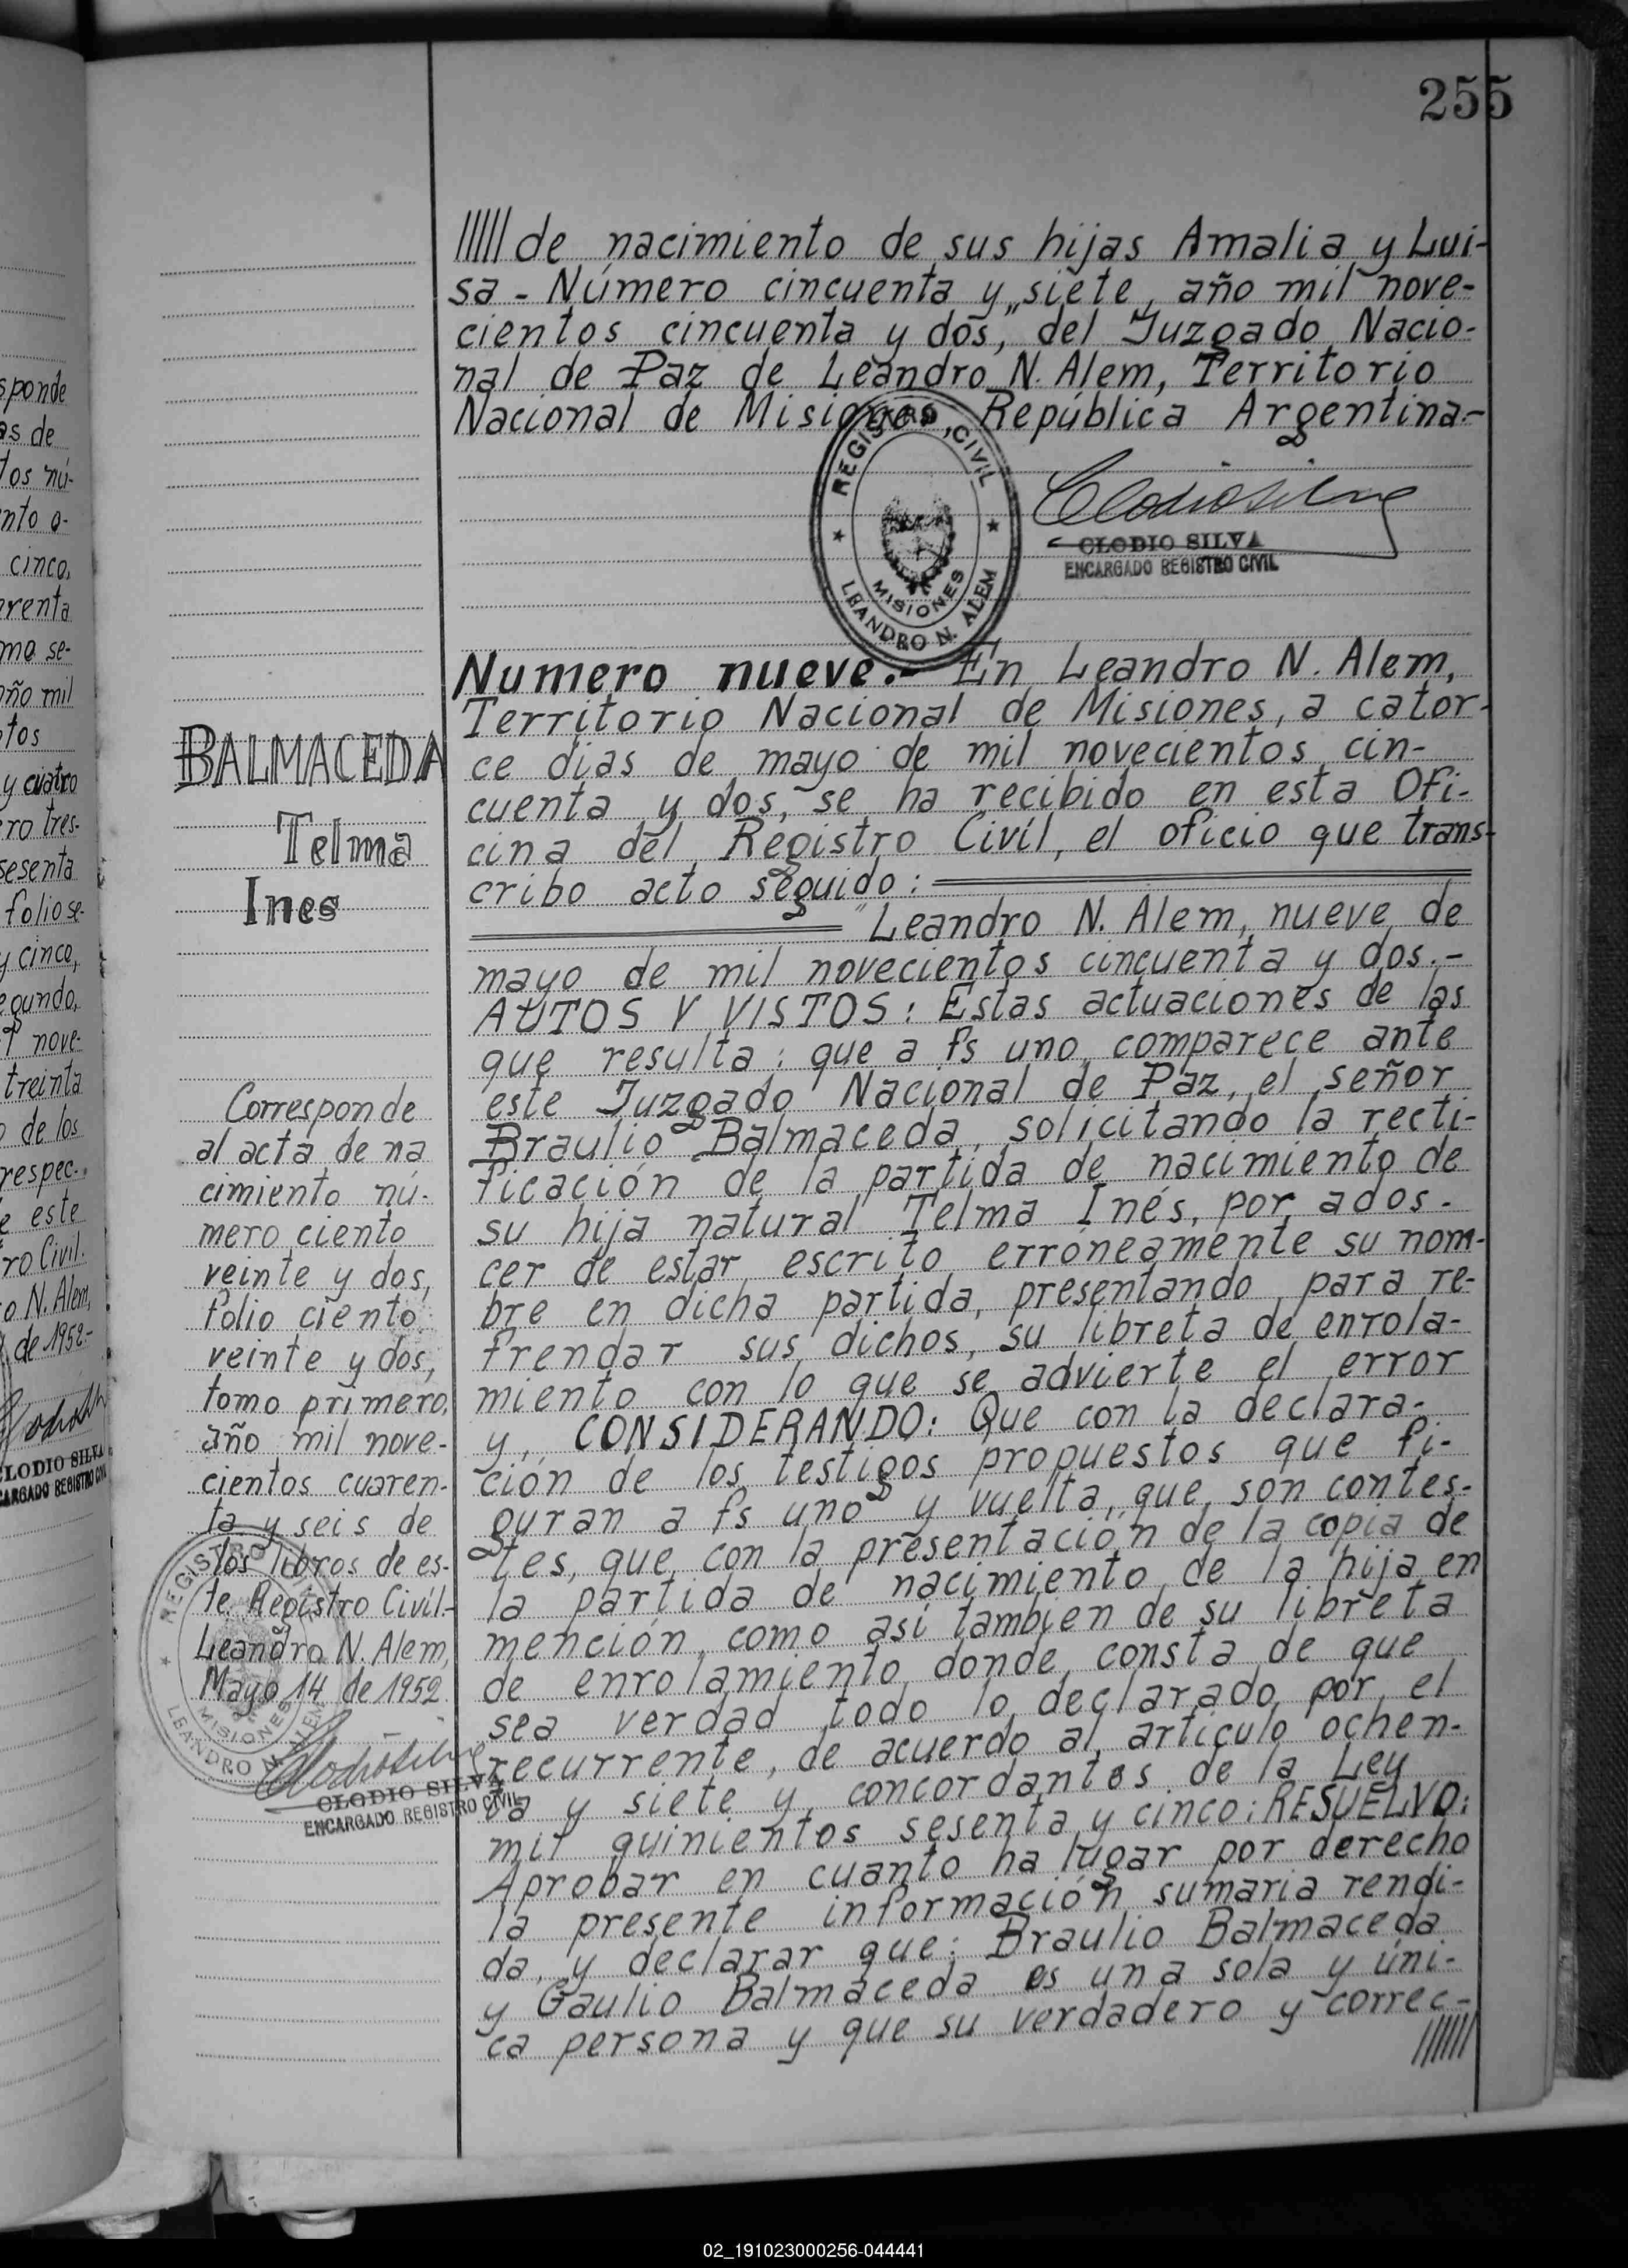 255
sponde
as de
tos nú-
nto o-
cinco,
renta
mo se-
año mil
tos
y cuatro
ro tres-
sesenta
folio se-
y cinco,
egundo,
nove-
treinta
de los
respec-
este
ro Civil.
o N. Alem,
de 1952-
CLODIO SILVA
ENCARGADO REGISTRO CIVIL
///// de nacimiento de sus hijas Amalia y Lui-
sa - Número cincuenta y siete, año mil nove-
cientos cincuenta y dos", del Juzgado Nacio-
nal de Paz de Leandro N. Alem, Territorio
Nacional de Misiones, República Argentina.-
REGISTRO CIVIL
MISIONES
LEANDRO N. ALEM
Clodio Silva
CLODIO SILVA
ENCARGADO REGISTRO CIVIL
BALMACEDA
Telma
Ines
Corresponde
al acta de na
cimiento nú-
mero ciento
veinte y dos,
folio ciento
veinte y dos,
tomo primero,
año mil nove-
cientos cuaren-
ta y seis de
los libros de es-
te Registro Civil-
Leandro N. Alem,
Mayo 14 de 1952
REGISTRO CIVIL
MISIONES
LEANDRO N. ALEM
Clodio Silva
CLODIO SILVA
ENCARGADO REGISTRO CIVIL
Numero nueve.- En Leandro N. Alem,
Territorio Nacional de Misiones, a cator-
ce dias de mayo de mil novecientos cin-
cuenta y dos, se ha recibido en esta Ofi-
cina del Registro Civíl, el oficio que trans-
cribo acto seguido:
"Leandro N. Alem, nueve de
mayo de mil novecientos cincuenta y dos.-
AUTOS Y VISTOS: Estas actuaciones de las
que resulta: que a fs uno comparece ante
este Juzgado Nacional de Paz, el señor
Braulio Balmaceda, solicitando la recti-
ficación de la partida de nacimiento de
su hija natural Telma Inés, por ados-
cer de estar escrito erróneamente su nom-
bre en dicha partida, presentando para re-
frendar sus dichos, su libreta de enrola-
miento con lo que se advierte el error
y, CONSIDERANDO: Que con la declara-
ción de los testigos propuestos que fi-
guran a fs uno y vuelta, que son contes-
tes, que con la presentación de la copia de
la partida de nacimiento de la hija en
mención, como así tambien de su libreta
de enrolamiento donde consta de que
sea verdad todo lo declarado por el
recurrente, de acuerdo al articulo ochen-
ta y siete y concordantes de la Ley
mil quinientos sesenta y cinco: RESUELVO:
Aprobar en cuanto ha lugar por derecho
la presente información sumaria rendi-
da, y declarar que: Braulio Balmaceda
y Gaulio Balmaceda es una sola y úni-
ca persona y que su verdadero y correc-
//////
02_191023000256-044441